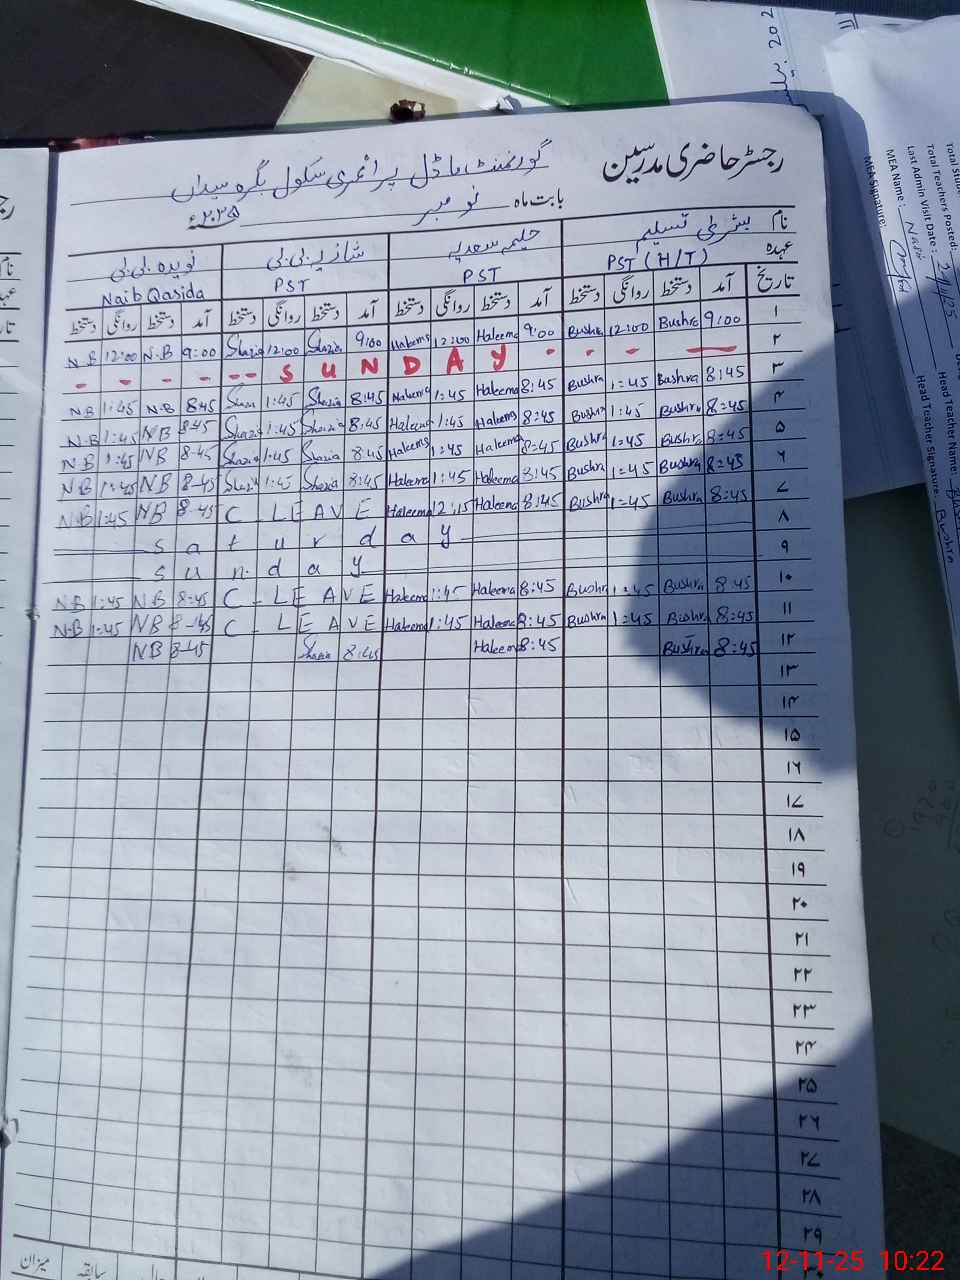 رجسٹر حاضری مدرسین
گورنمنٹ ماڈل پرائمری سکول بگرہ سیداں
بابت ماہ نومبر ۲۰۲۵ء
نام بشریٰ تسلیم حلیمہ سعدیہ شازیہ بی بی نویدہ بی بی
عہدہ PST (H/T) PST PST Naib Qasida
تاریخ آمد دستخط روانگی دستخط آمد دستخط روانگی دستخط آمد دستخط روانگی دستخط آمد دستخط روانگی دستخط
۱ 9:00 Bushra 12:00 Bushra 9:00 Haleema 12:00 Haleema 9:00 Shazia 12:00 Shazia 9:00 N.B 12:00 N.B
۲ SUNDAY
۳ 8:45 Bushra 1:45 Bushra 8:45 Haleema 1:45 Haleema 8:45 Shazia 1:45 Shazia 8:45 NB 1:45 NB
۴ 8:45 Bushra 1:45 Bushra 8:45 Haleema 1:45 Haleema 8:45 Shazia 1:45 Shazia 8-45 NB 1:45 N.B
۵ 8:45 Bushra 1:45 Bushra 8:45 Haleema 1:45 Haleema 8:45 Shazia 1:45 Shazia 8-45 NB 1:45 NB
۶ 8:45 Bushra 1:45 Bushra 8:45 Haleema 1:45 Haleema 8:45 Shazia 1:45 Shazia 8-45 NB 1:45 NB
۷ 8:45 Bushra 1:45 Bushra 8:45 Haleema 12:15 Haleema C-LEAVE 8-45 NB 1:45 N.B
۸ saturday
۹ sunday
۱۰ 8:45 Bushra 1:45 Bushra 8:45 Haleema 1:45 Haleema C-LEAVE 8-45 NB 1:45 NB
۱۱ 8:45 Bushra 1:45 Bushra 8:45 Haleema 1:45 Haleema C-LEAVE 8-45 NB 1:45 NB
۱۲ 8:45 Bushra 8:45 Haleema 8:45 Shazia 8-45 NB
۱۳
۱۴
۱۵
۱۶
۱۷
۱۸
۱۹
۲۰
۲۱
۲۲
۲۳
۲۴
۲۵
۲۶
۲۷
۲۸
۲۹
سابقہ میزان
Total Teachers Posted:
Last Admin Visit Date:
MEA Name:
MEA Signature:
Head Teacher Name:
Head Teacher Signature: Bushra
12-11-25 10:22